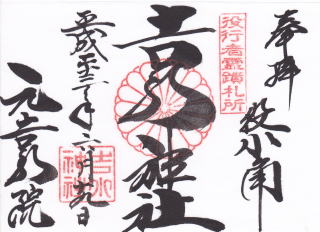 奉拝
役小角
役行者霊蹟札所
吉水神社
吉水神社
平成二十二年六月十九日
元吉水院